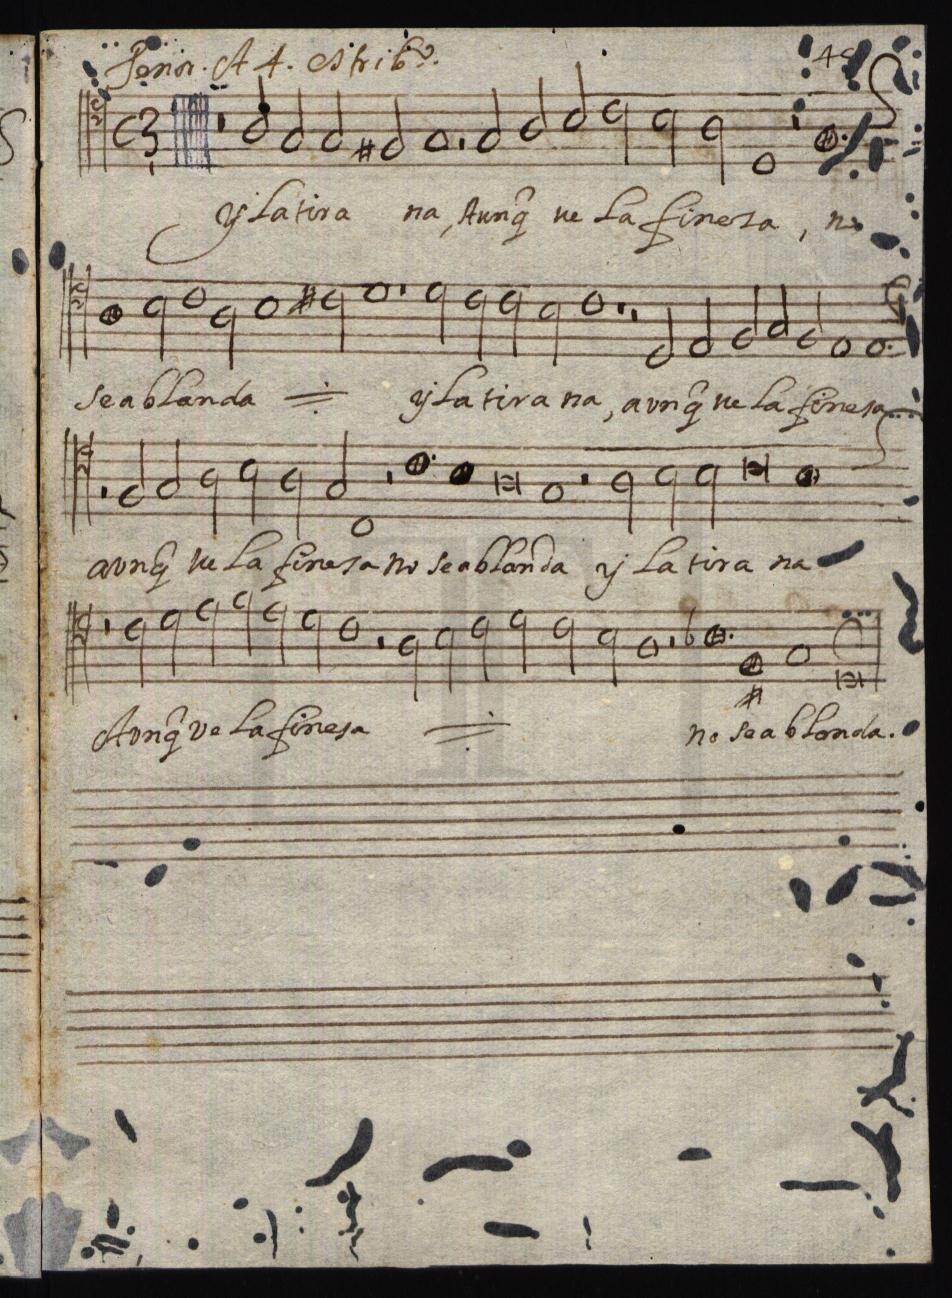 Tenor. A 4. estribº.
y la tira na, Aunq̃ ve la finesa, no
se ablanda y la tira na, aunq̃ ve la finesa
aunq̃ ve la finesa no se ablanda y la tira na
Aunq̃ ve la finesa no se ablanda.